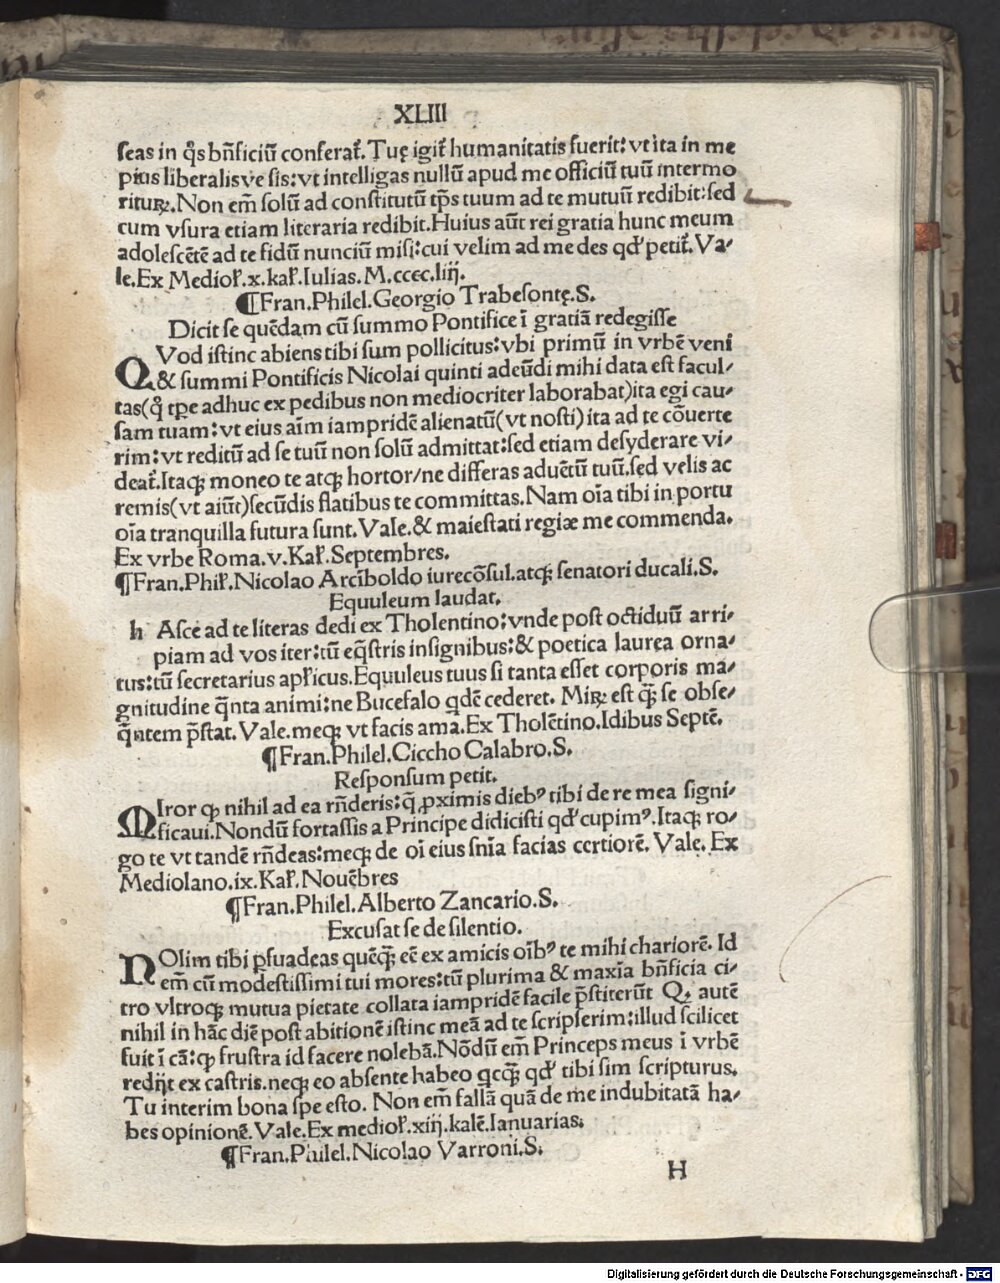 XLIII
seas in q̊s bn̄ficiū conferat᷒. Tuę igit᷒ humanitatis fuerit: vt ita in me
pius liberalisve sis: vt intelligas nullū apud me officiū tuū intermo
rituꝝ. Non em̄ solū ad constitutū tp̄s tuum ad te mutuū redibit: sed
cum vsura etiam literaria redibit. Huius aūt rei gratia hunc meum
adolescētē ad te fidū nunciū misi: cui velim ad me des qd' petit᷒. Va⸗
le. Ex Mediol'. x. kal'. Iulias. M. cccc. liij.
¶Fran. Philel. Georgio Trabesontę. S.
Dicit se quēdam cū summo Pontifice ī gratiā redegisse
QVod istinc abiens tibi sum pollicitus: vbi primū in vrbē veni
& summi Pontificis Nicolai quinti adeūdi mihi data est facul⸗
tas(q̊ tp̄e adhuc ex pedibus non mediocriter laborabat)ita egi cau⸗
sam tuam: vt eius aīm iampridē alienatū(vt nosti) ita ad te cōuerte
rim: vt reditū ad se tuū non solū admittat: sed etiam desyderare vi⸗
deat᷒. Itaqꝫ moneo te atqꝫ hortor/ne differas aduētū tuū. sed velis ac
remis(vt aiūt)secūdis flatibus te committas. Nam oīa tibi in portu
oīa tranquilla futura sunt. Vale. & maiestati regiæ me commenda.
Ex vrbe Roma. v. Kal'. Septembres.
¶Fran. Phil'. Nicolao Arcīboldo iurecōsul. atqꝫ senatori ducali. S.
Equuleum laudat.
h Asce ad te literas dedi ex Tholentino: vnde post octiduū arri⸗
piam ad vos iter: tū eq̄stris insignibus: & poetica laurea orna⸗
tus: tū secretarius apl'icus. Equuleus tuus si tanta esset corporis ma⸗
gnitudine q̄nta animi: ne Bucefalo qdē cederet. Miꝝ est q̄ꝫ se obse⸗
q̄ntem p̄stat. Vale. meqꝫ vt facis ama. Ex Tholētino. Idibus Septē.
¶Fran. Philel. Ciccho Calabro. S.
Responsum petit.
MIror ꝙ nihil ad ea rn̄deris: q̄ ꝓximis dieb⁹ tibi de re mea signi⸗
ficaui. Nondū fortassis a Principe didicisti qd' cupim⁹. Itaqꝫ ro⸗
go te vt tandē rn̄deas: meqꝫ de oī eius sn̄ia facias certiorē. Vale. Ex
Mediolano. ix. Kal'. Nouēbres
¶Fran. Philel. Alberto Zancario. S.
Excusat se de silentio.
NOlim tibi ꝑsuadeas quēqꝫ̄ eē ex amicis oīb⁹ te mihi chariorē. Id
em̄ cū modestissimi tui mores: tū plurima & maxīa bn̄ficia ci⸗
tro vltroqꝫ mutua pietate collata iampridē facile p̄stiterūt Q. autē
nihil in hāc diē post abitionē istinc meā ad te scripserim: illud scilicet
fuit ī cā: ꝙ frustra id facere nolebā. Nōdū em̄ Princeps meus ī vrbē
redijt ex castris. neqꝫ eo absente habeo qcqꝫ̄ qd' tibi sim scripturus.
Tu interim bona spe esto. Non em̄ fallā quā de me indubitatā ha⸗
bes opinionē. Vale. Ex mediol'. xiij. kalē. Ianuarias.
¶Fran. Philel. Nicolao Varroni. S.
H
Digitalisierung gefördert durch die Deutsche Forschungsgemeinschaft - DFG